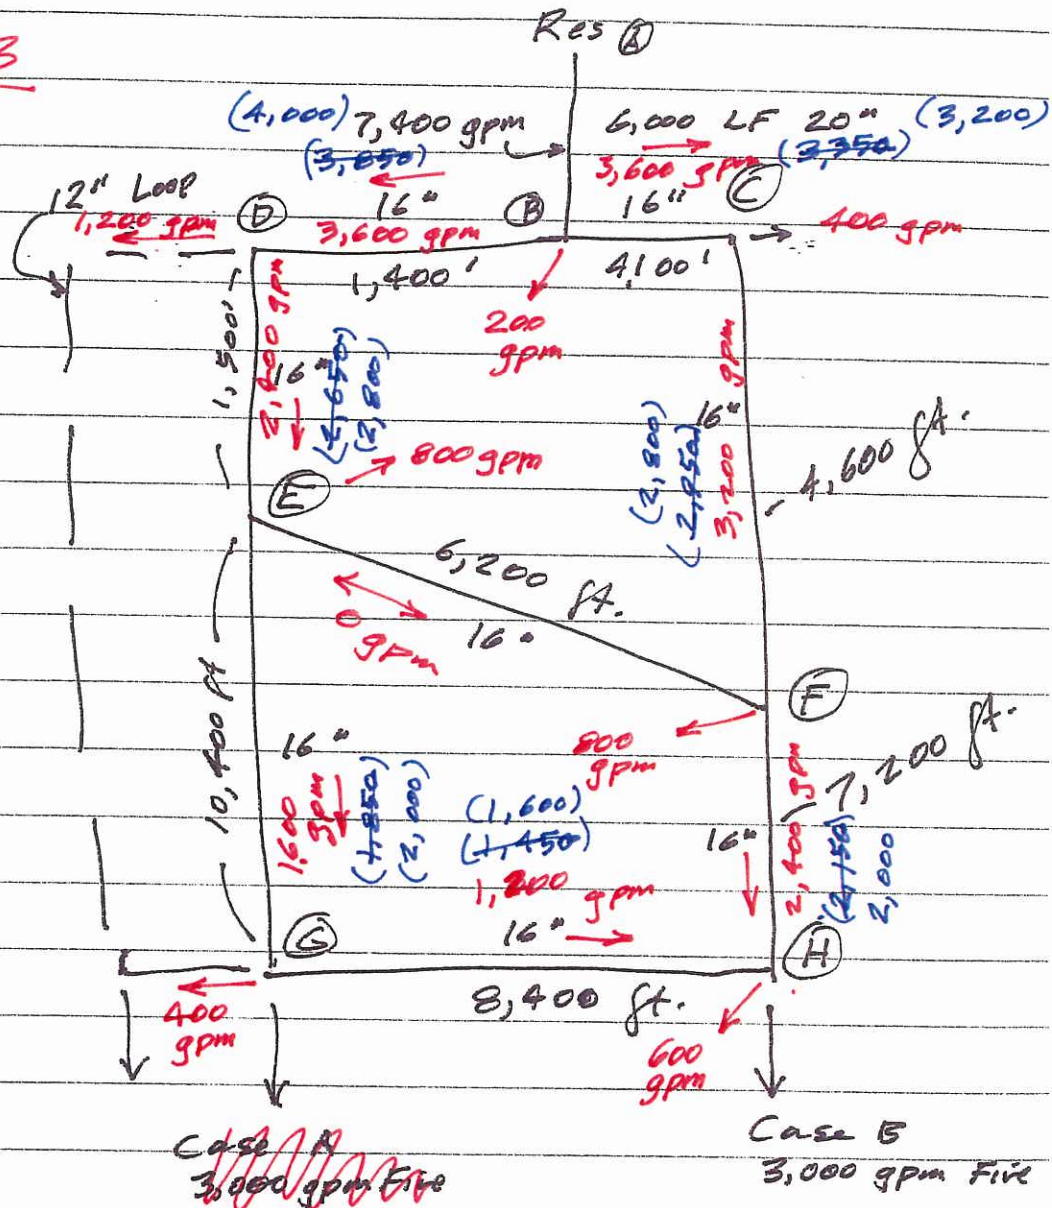 Res Ⓐ
B
(4,000) 7,400 gpm
(3,850)
6,000 LF 20" (3,200)
3,600 gpm (3,350)
12" Loop
1,200 gpm
Ⓓ
16"
3,600 gpm
Ⓑ
16"
Ⓒ
400 gpm
1,400'
4,100'
200
gpm
1,500'
2,400 gpm
16"
(2,650)
(2,800)
800 gpm
Ⓔ
16"
3,200 gpm
(2,800)
(2,950)
4,600 ft.
6,200 ft.
16"
0
gpm
Ⓕ
800
gpm
10,400 ft
16"
1,600
gpm
(1,850)
(2,000)
(1,600)
(1,450)
1,200 gpm
16"
16"
2,400 gpm
(2,150)
2,000
7,200 ft.
Ⓖ
Ⓗ
8,400 ft.
400
gpm
600
gpm
Case A
3,000 gpm Fire
Case B
3,000 gpm Fire